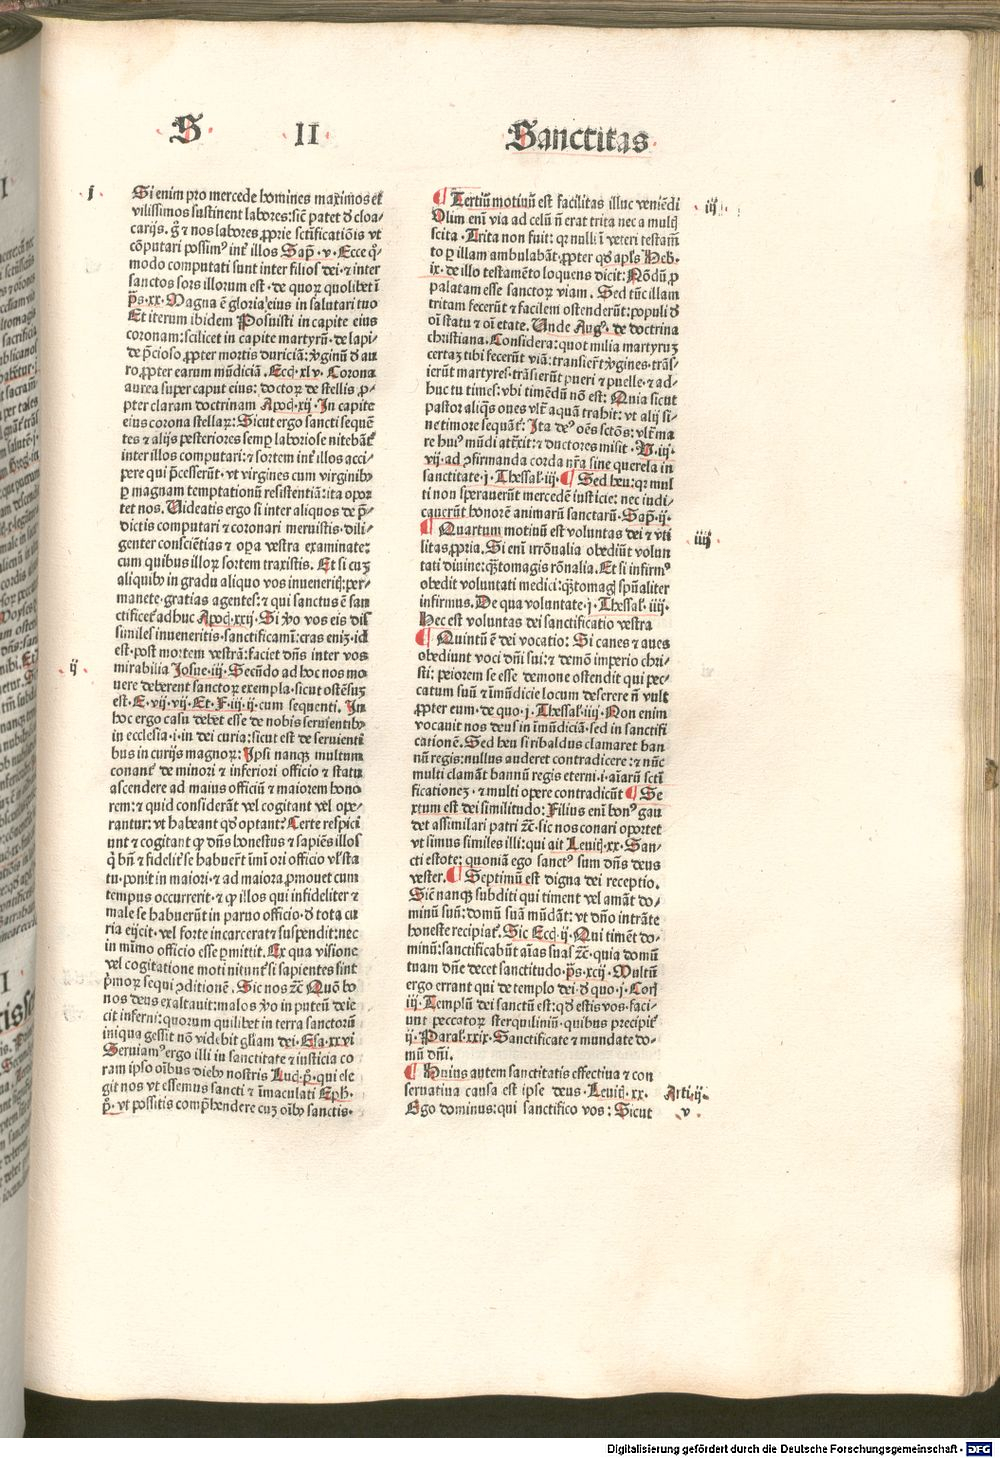 S II Sanctitas
j
Si enim pro mercede homines maximos et
vilissimos sustinent labores: sic̄ patet ꝺ cloa⸗
carijs. g̊ ⁊ nos labores ꝓprie sct̄ificatiōis vt
cōputari possimꝰ int̄ illos Sap̄.v. Ecce q̊⸗
modo computati sunt inter filios dei.⁊ inter
sanctos sors illorum est. de quoꝝ quolibet ī
p̄s.xx. Magna ē gloria eius in salutari tuo
Et iterum ibidem Posuisti in capite eius
coronam: scilicet in capite martyrū. de lapi⸗
de p̄cioso ꝓpter mortis duriciā: v̓ginū ꝺ au
ro ꝓpter earum mūdiciā. Ecci̓.xlv. Corona
aurea super caput eius: doctoꝝ de stellis ꝓ⸗
pter claram doctrinam Apoc̓.xij. In capite
eius corona stellaꝝ: Sicut ergo sancti sequē
tes ⁊ alijs posteriores semꝑ laboriose nitebāt̄
inter illos computari: ⁊ sortem int̄ illos acci⸗
pere qui p̄cesserūt. vt virgines cum virginibꝰ
ꝑ magnam temptationū resistentiā: ita opor
tet nos. Uideatis ergo si inter aliquos de p̄⸗
dictis computari ⁊ coronari meruistis. dili⸗
genter consciētias ⁊ oꝑa vestra examinate:
cum quibus illoꝝ sortem traxistis. Et si cuꝫ
aliquibꝰ in gradu aliquo vos inueneritꝭ: per⸗
manete. gratias agentes: ⁊ qui sanctus ē san
ctificet̄ adhuc Apoc̓.xxij. Si v̓o vos eis dis
similes inueneritis. sanctificami̅: cras eniꝫ. id
est. post mortem vestrā: faciet dn̄s inter vos
ij
mirabilia Josue.iij. Secūdo ad hoc nos mo
uere deberent sanctoꝝ exempla. sicut ostēsuꝫ
est. E. vij. vij. Et. F. iij. ij. cum sequenti. In
hoc ergo casu debet esse de nobis seruientibꝰ
in ecclesia.i. in dei curia: sicut est de seruienti
bus in curijs magnoꝝ: Ipsi nanqꝫ multum
conant̄ de minori ⁊ inferiori officio ⁊ statu
ascendere ad maius officiū ⁊ maiorem hono
rem: ⁊ quid considerāt vel cogitant vel ope⸗
rantur: vt habeant qd̓ optant? Certe respici
unt ⁊ cogitant ꝙ dn̄s honestus ⁊ sapiēs illos
q̇ bn̄ ⁊ fidelit̄ se habuer̄t in m̄ori officio vl̓ sta
tu. ponit in maiori. ⁊ ad maiora ꝓmouet cum
tempus occurrerit. ⁊ ꝙ illos qui infideliter ⁊
male se habuerūt in paruo officio. ꝺ tota cu
ria eijcit. vel forte incarcerat ⁊ suspendit: nec
in mīmo officio esse ꝑmittit. Ex qua visione
vel cogitatione moti nitunt̄ si sapientes sint
p̄moꝝ sequi ꝯditionē. Sic nos ⁊c̄ Quō bo
nos deus exaltauit: malos v̓o in puteū deie
cit inferni: quorum quilibet in terra sanctorū
iniqua gessit nō videbit gl̄iam dei. Esa.xxvi
Seruiamꝰ ergo illi in sanctitate ⁊ iusticia co
ram ipso oībus diebꝰ nostris Luc̓.p̊. qui ele
git nos vt essemus sancti ⁊ īmaculati Eph̓.
p̊. vt possitis comp̄hendere cuꝫ oībꝰ sanctis.
iij
¶ Tertiū motiuū est facilitas illuc veniēdi
Olim eni̅ via ad celū n̄ erat trita nec a multꝭ
scita. Trita non fuit: qꝛ nulli ī veteri testam̄
to ꝑ illam ambulabāt. ꝓpter qd̓ apl̓s Heb̓.
ix. de illo testamēto loquens dicit: Nōdū ꝓ
palatam esse sanctoꝝ viam. Sed tūc illam
tritam fecerūt ⁊ facilem ostenderūt: populi ꝺ
oī statu ⁊ oī etate. Unde Aug̓. de doctrina
christiana. Considera: quot milia martyruꝫ
certaꝫ tibi fecerūt viā: transier̄t v̓gines. trās⸗
ierūt martyres. trāsierūt pueri ⁊ puelle. ⁊ ad⸗
huc tu times: vbi timēdū nō est: Quia sicut
pastor aliq̄s oues vlt̄ aquā trahit: vt alij si⸗
ne timore sequāt̄: Ita deꝰ oēs sctōs: vlt̄ ma
re huiꝰ mūdi atr̄xit: ⁊ ductores misit. U. iij.
vij. ad ꝯfirmanda corda nr̄a sine querela in
sanctitate.j. Thessal̓.iij. ¶ Sed heu: qꝛ mul
ti non sperauerūt mercedē iusticie: nec iudi⸗
cauerūt honorē animarū sanctarū. Sap̄.ij.
iiij
¶ Quartum motiuū est voluntas dei ⁊ vti
litas ꝓpria. Si eni̅ irrōnalia obediūt volun
tati diuine: q̄ntomagis rōnalia. Et si infirmꝰ
obedit voluntati medici: q̄ntomagꝭ spūaliter
infirmus. De qua voluntate.j. Thessal̓.iiij.
Hec est voluntas dei sanctificatio vestra
¶ Quintū ē dei vocatio: Si canes ⁊ aues
obediunt voci dn̄i sui: ⁊ demō imperio chri⸗
sti: peiorem se esse demone ostendit qui pec⸗
catum suū ⁊ īmūdicie locum deserere n̄ vult
ꝓpter eum. de quo.j. Thessal̓.iiij. Non enim
vocauit nos deus in īmūdiciā. sed in sanctifi
cationē. Sed heu si ribaldus clamaret ban
nū regis: nullus auderet contradicere: ⁊ nūc
multi clamāt bannū regis eterni.i. aīarū scti̅
ficationeꝫ. ⁊ multi opere contradicūt ¶ Se
xtum est dei similitudo: Filius eni̅ bonꝰ gau
det assimilari patri ⁊c̄. sic nos conari oportet
vt simus similes illi: qui ait Leuit̓.xx. San⸗
cti estote: quoniā ego sanctꝰ sum dn̄s deus
vester. ¶ Septimū est digna dei receptio.
Sic̄ nanqꝫ subditi qui timent vel amāt do⸗
minū suū: domū suā mūdāt: vt dn̄o intrāte
honeste recipiat̄. Sic Ecci̓.ij. Qui timēt do⸗
minū: sanctificabūt aīas suas ⁊c̄. quia domū
tuam dn̄e decet sanctitudo. p̄s.xcij. Multū
ergo errant qui de templo dei. ꝺ quo.j. Cori̓
iij. Templū dei sanctū est: qd̓ estis vos. faci⸗
unt peccatoꝝ sterquiliniū. quibus precipit̄
ij. Paral̓.xxix. Sanctificate ⁊ mundate do⸗
mū dn̄i.
¶ Huius autem sanctitatis effectiua ⁊ con
seruatiua causa est ipse deus. Leuit̓.xx.
Ego dominus: qui sanctifico vos: Sicut
Arti. ij.
v
Digitalisierung gefördert durch die Deutsche Forschungsgemeinschaft - DFG